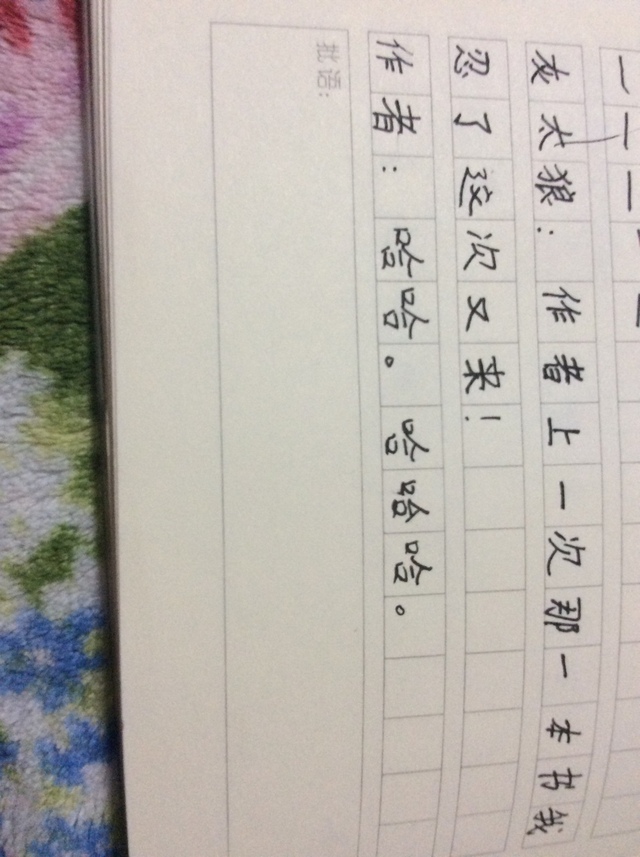 一一一
灰太狼：作者上一次那一本书我
忍了这次又来！
作者：哈哈。哈哈哈。
批语：